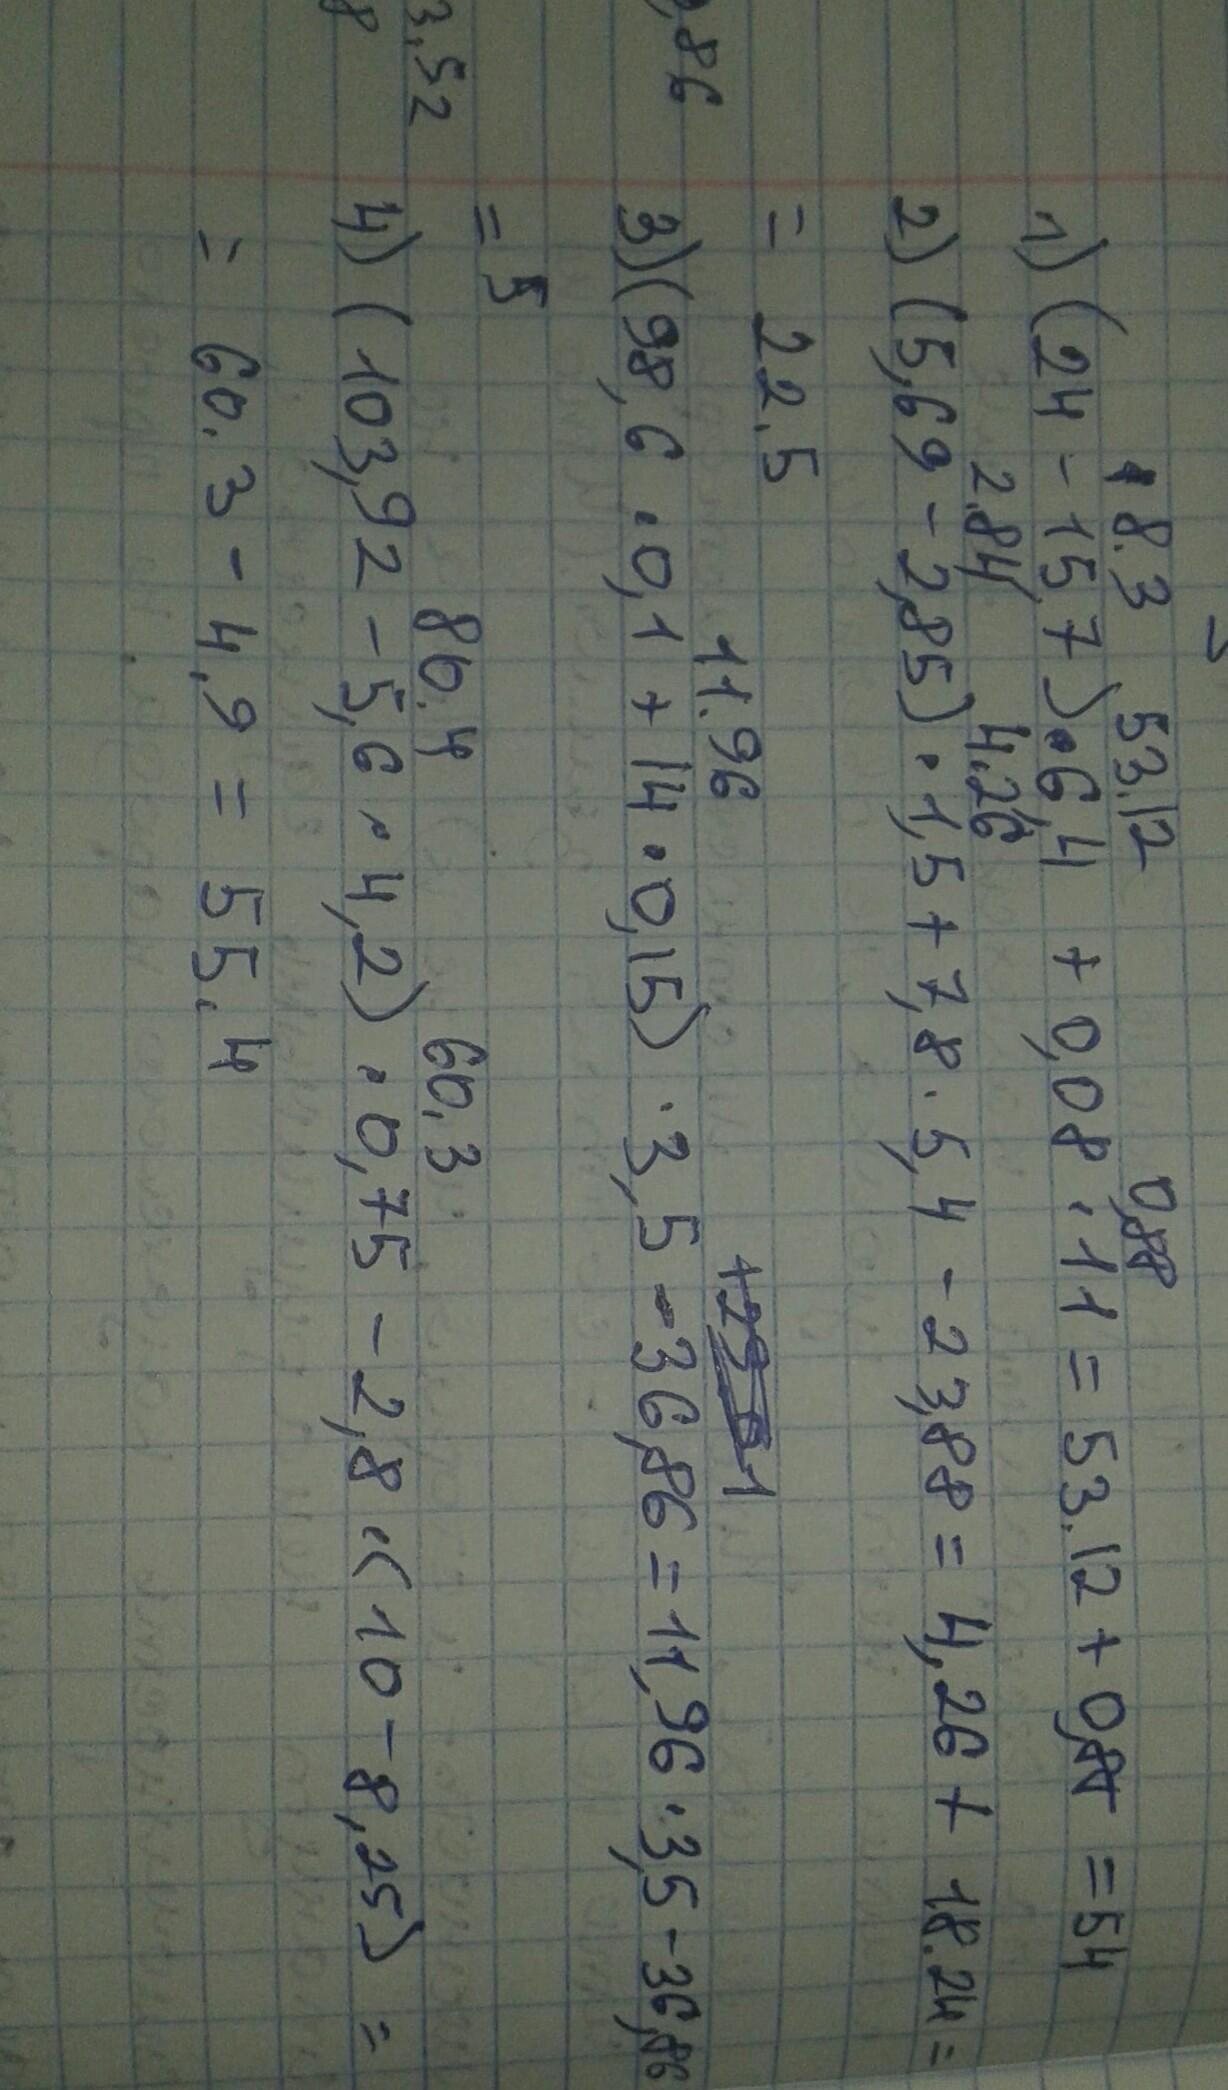 8.3 53.12 0,88
1) (24 - 15,7) · 6,4 + 0,08 · 11 = 53.12 + 0,88 = 54
2.84 4.26
2) (5,69 - 2,85) · 1,5 + 7,8 · 5,4 - 23,88 = 4,26 + 18.24 =
= 22.5
11.96
3) (98,6 · 0,1 + 14 · 0,15) · 3,5 - 36,86 = 11,96 · 3,5 - 36,86
,86
= 5
3,52
8
80.4 60,3
4) (103,92 - 5,6 · 4,2) · 0,75 - 2,8 · (10 - 8,25) =
= 60.3 - 4,9 = 55.4